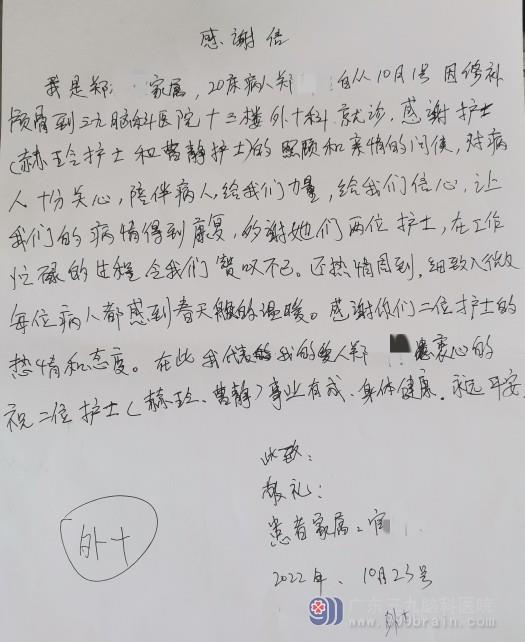 感谢信
我是郑 家属，20床病人郑 自从10月1号因修补
颅骨到三九脑科医院十三楼外十科就诊，感谢护士
（赫玲护士和曹静护士）的照顾和亲情的问候，对病
人十分关心，陪伴病人，给我们力量，给我们信心，让
我们的病情得到康复，感谢她们两位护士，在工作
忙碌的过程令我们赞叹不已。还热情周到，细致入微
每位病人都感到春天般的温暖。感谢你们二位护士的
热情和态度。在此我代表我的爱人郑 衷心的
祝二位护士（赫玲、曹静）事业有成、身体健康，永远平安
此致：
敬礼：
患者家属：官
2022年、10月23号
外十
外十
广东三九脑科医院
www.999brain.com